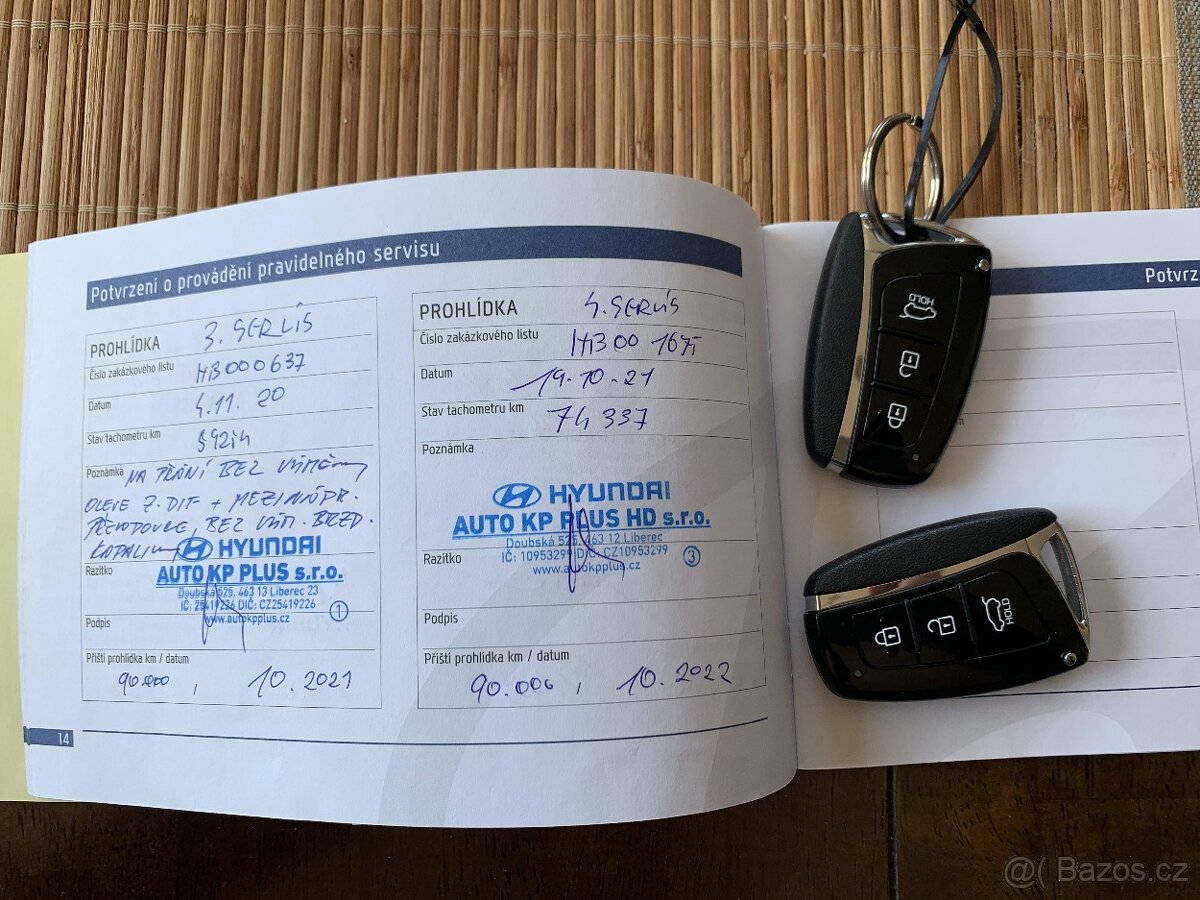 Potvrzení o provádění pravidelného servisu
PROHLÍDKA 3. SERVIS
Číslo zakázkového listu HB000637
Datum 4.11.20
Stav tachometru km
Poznámka NA PŘÁNÍ BEZ VÝMĚNY
OLEJE Z. DIF + MEZINÁPR.
PŘEVODOVCE, BEZ VÝM. BRZD.
KAPALINY
HYUNDAI
AUTO KP PLUS s.r.o.
Doubská 525, 463 13 Liberec 23
IČ: 25419226 DIČ: CZ25419226
www.autokpplus.cz
1
Razítko
Podpis
Příští prohlídka km / datum
90.000, 10.2021
14
PROHLÍDKA 4. SERVIS
Číslo zakázkového listu
Datum 19.10.21
Stav tachometru km 74 337
Poznámka
HYUNDAI
AUTO KP PLUS HD s.r.o.
Doubská 525, 463 12 Liberec
IČ: 10953299 DIČ: CZ10953299
www.autokpplus.cz
3
Razítko
Podpis
Příští prohlídka km / datum
90.000, 10.2022
Potvrz
HOLD
HOLD
@( Bazos.cz